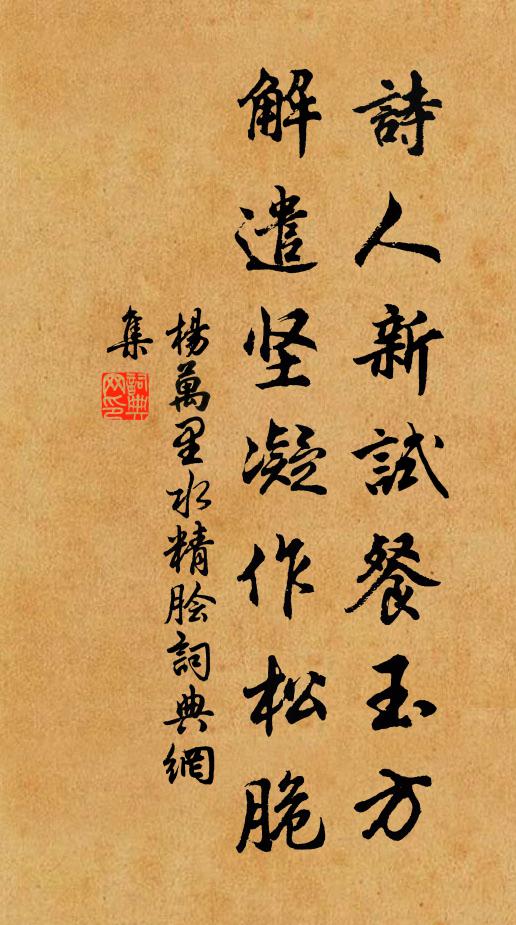 詩人新試餐玉方
解遣坚凝作松脆
楊萬里水精脍詞典網
集
詞典
网印